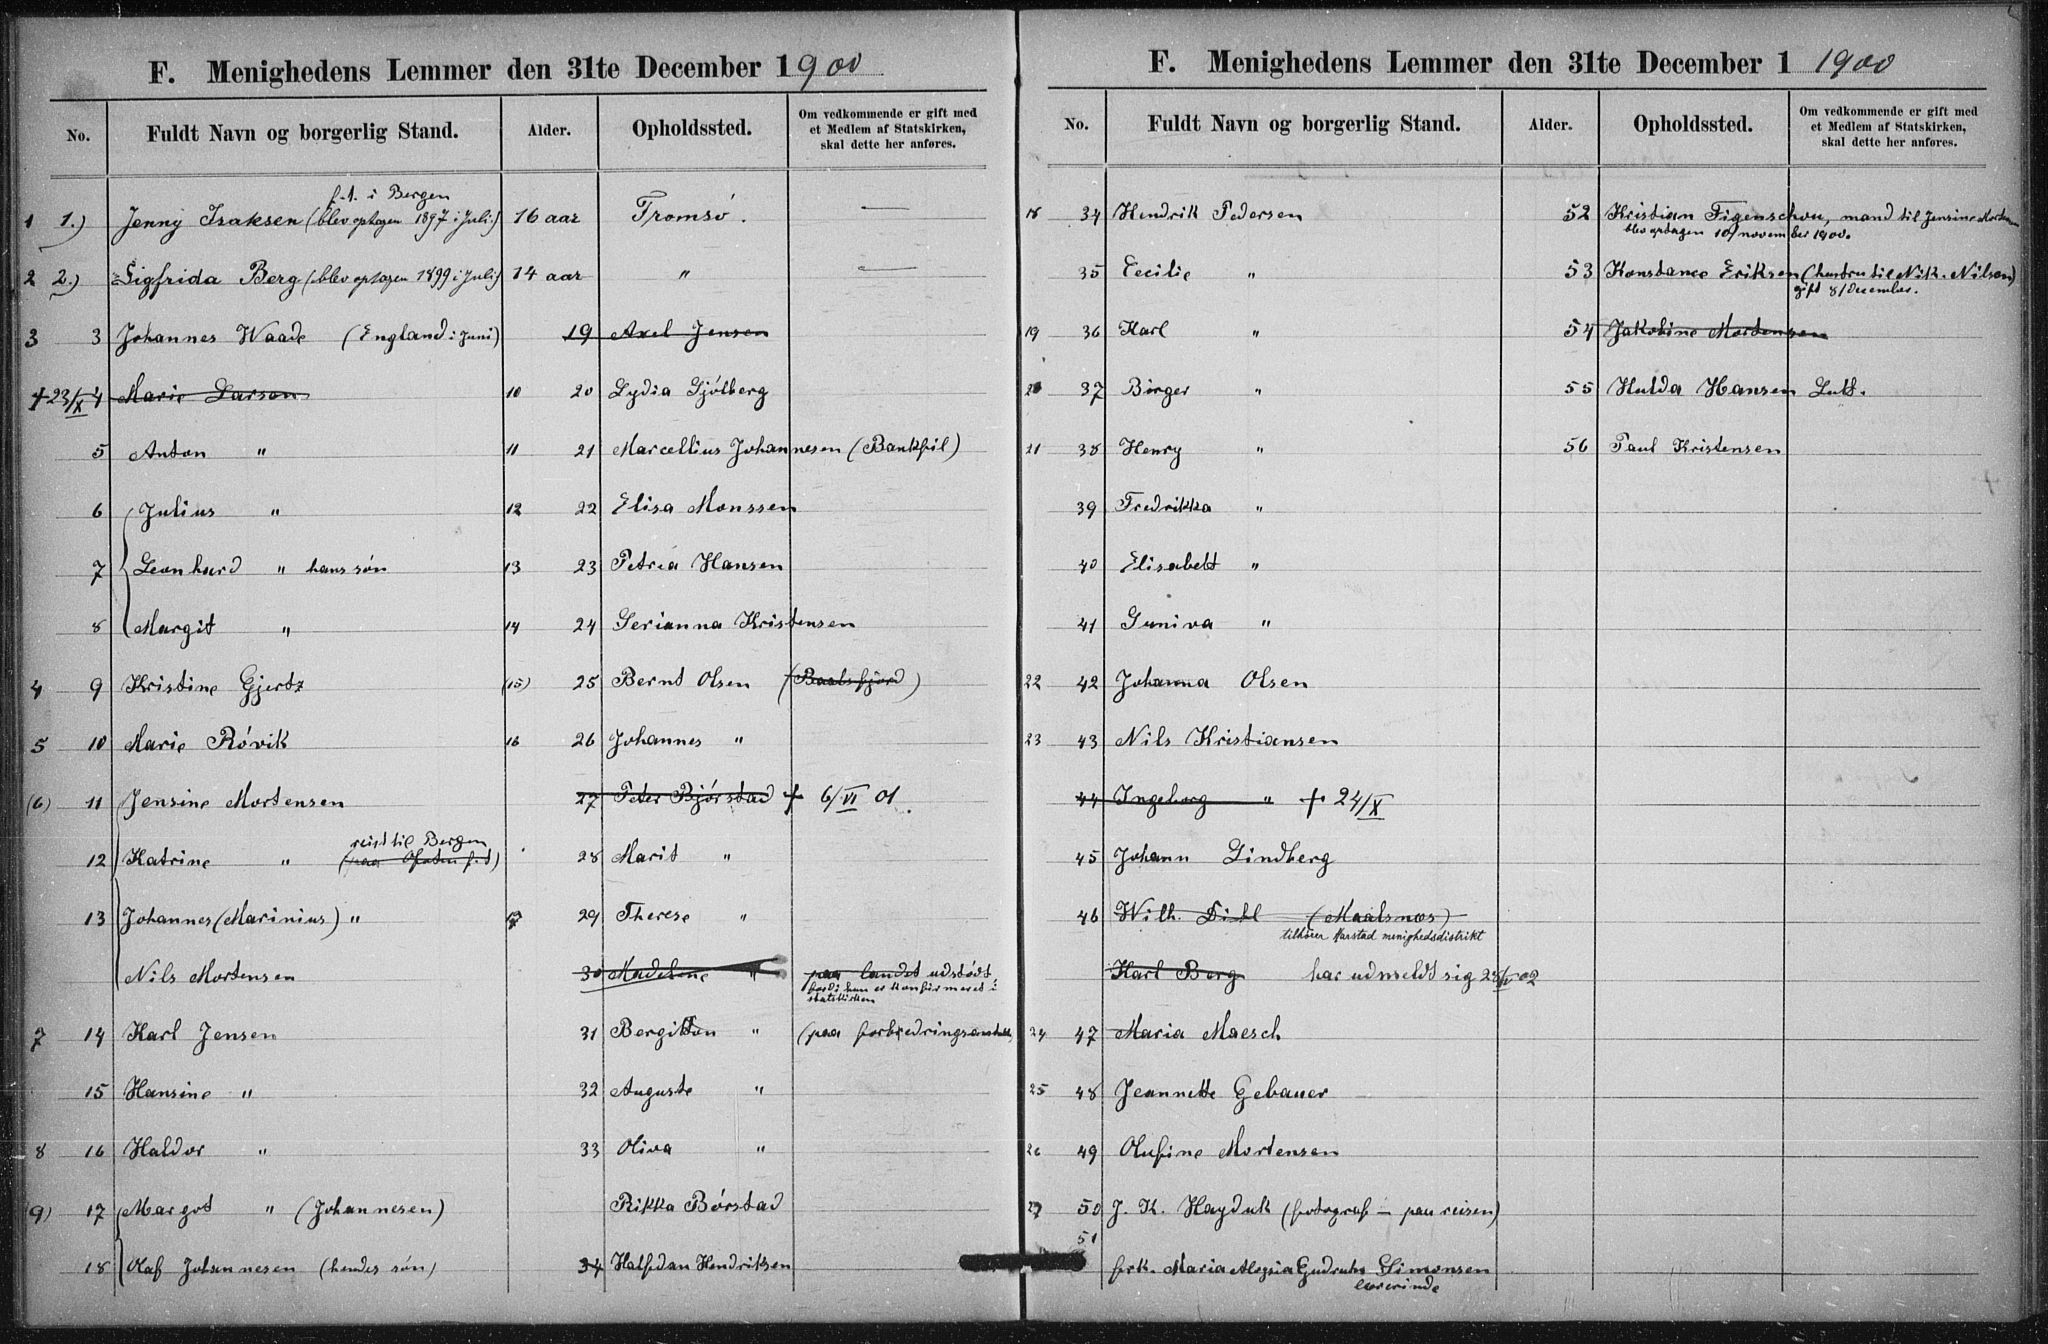 F. Menighedens Lemmer den 31te December 1900
No. Fuldt Navn og borgerlig Stand. Alder. Opholdssted. Om vedkommende er gift med et Medlem af Statskirken, skal dette her anføres.
f.t. i Bergen
1 1.) Jenny Isaksen (blev optagen 1897 i Juli) 16 aar Tromsø. —
2 2.) Sigfrida Berg (blev optagen 1899 i Juli) 14 aar " —
3 3 Johannes Waade (England i Juni) 19 Axel Jensen
+23/X 4 Marie Larsen 10 20 Lydia Gjølberg
5 Anton " 11 21 Marcellius Johannesen (Bankfil)
6 Julius " 12 22 Elisa Monssen
7 Leonhard " hans søn 13 23 Petrea Hansen
8 Margit " 14 24 Gerianna Kristensen
4 9 Kristine Gjertz (15) 25 Bernt Olsen (Baalsfjord)
5 10 Marie Røvik 16 26 Johannes "
(6) 11 Jensine Mortensen 27 Peter Bjørstad + 6/VI 01.
reist til Bergen
12 Katrine " (paa Ofoten f.t) 28 Marit "
13 Johannes (Marinius) " 17 29 Therese "
Nils Mortensen 30 Madelene " paa landet udstødt
fordi hun er konfirmeret i
statskirken
7 14 Karl Jensen 31 Bergitton " (paa forbedringsanstalt)
15 Hansine " 32 Auguste "
8 16 Haldor " 33 Oliva "
(9) 17 Margot " (Johannesen) Rikka Børstad
18 Kaf Johannesen (hendes søn) 34 Halfdan Hendriksen
F. Menighedens Lemmer den 31te December 1 1900
No. Fuldt Navn og borgerlig Stand. Alder. Opholdssted. Om vedkommende er gift med et Medlem af Statskirken, skal dette her anføres.
18 34 Hendrik Pedersen 52 Kristian Figenschou, mand til Jensine Mortensen
blev optagen 10/november 1900.
35 Cecilie " 53 Konstance Eriksen (hustru til Nik. Nilsen)
gift 8/december.
19 36 Karl " 54 Jakobine Mortensen
20 37 Børger " 55 Hulda Hansen Lutt.
21 38 Henry " 56 Paul Kristensen
39 Fredrikka "
40 Elisabett "
41 Guniva "
22 42 Johanna Olsen
23 43 Nils Kristiansen
44 Ingeborg " + 24/X
45 Johann Lindberg
46 Wilh. Dihl (Maalsnæs)
tilhører Harstad menighedsdistrikt
Karl Berg har udmeldt sig 28/IV 02
24 47 Maria Maesch
25 48 Jeannette Gebauer
26 49 Olufine Mortensen
27 50 J. K. Hayduk (fotograf — paa reisen)
51
frk. Maria Aloysia Gudruhn Simonsen
lærerinde